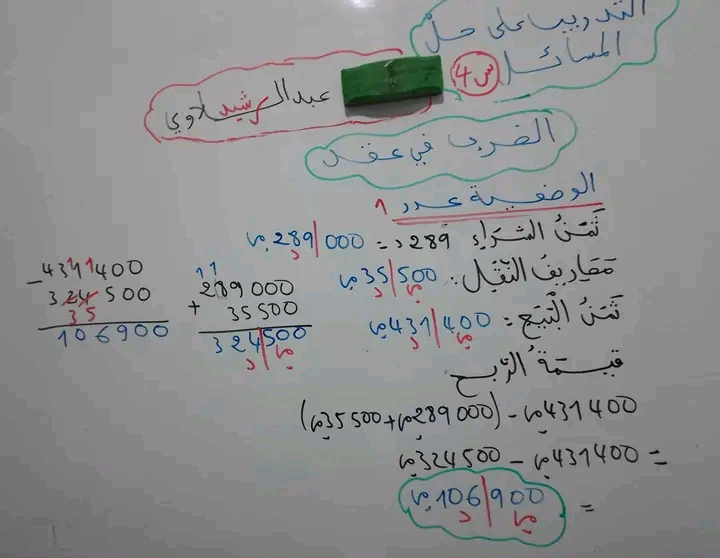 التدريب على حل
المسائل
س4
عبد الرشيد لاوي
الضرب في عقد
الوضعية عدد 1
ثَمَنُ الشِّرَاءِ 289د = 289|000مي
مَصَارِيفُ النَّقْلِ: 35|500مي
د
ثَمَنُ الْبَيْعِ: 431|400مي
د مي
قيمَةُ الرِّبح
431400مي - (289000مي + 35500مي)
= 431400مي - 324500مي
= 106|900مي
د مي
11
289000
+ 35500
324|500
د مي
- 431400
324500
35
106900